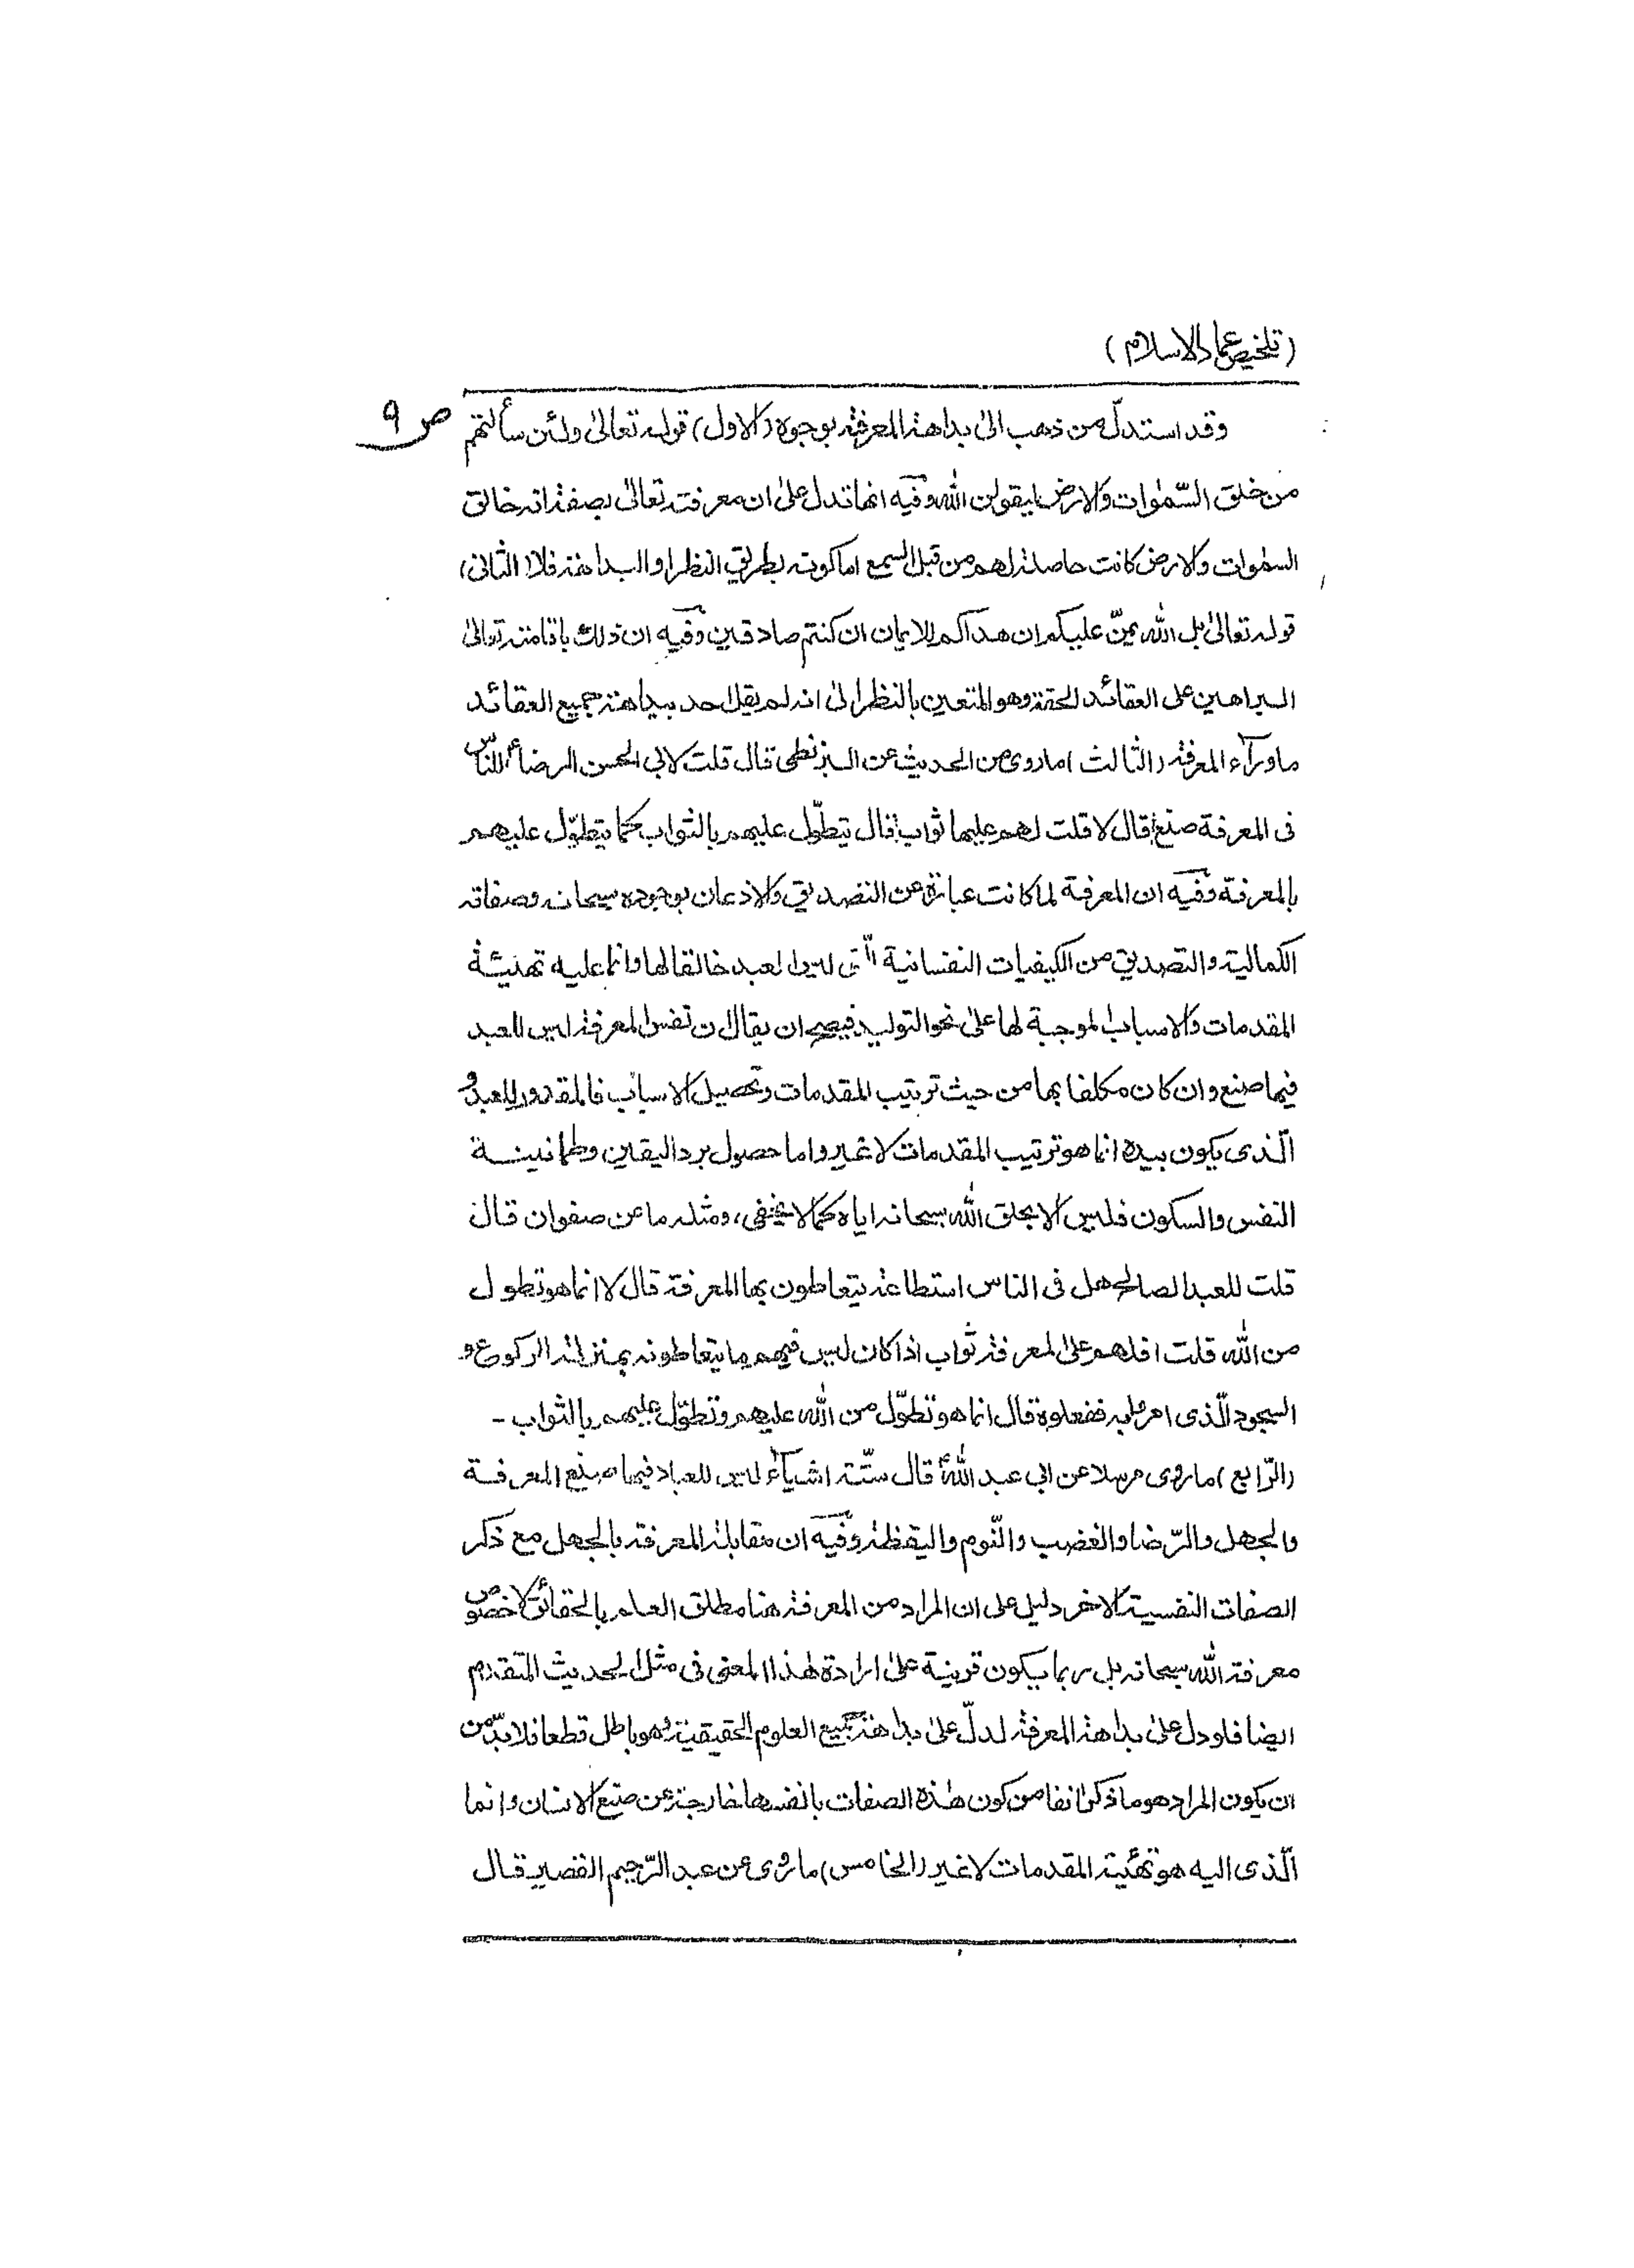 (تلخيص عماد الاسلام)
ص ٩
وقد استدلّ من ذهب الىٰ بداهة المعرفة بوجوه (الاول) قوله تعالىٰ ولئن سألتهم
من خلق السّمٰوات والارض ليقولن الله وفيه انها تدل علىٰ ان معرفته تعالىٰ بصفة انه خالق
السمٰوات والارض كانت حاصلة لهم من قبل السمع اما كونه بطريق النظر او البداهة فلا (الثانى)
قوله تعالىٰ بل الله يمنّ عليكم ان هداكم للايمان ان كنتم صادقين وفيه ان ذلك باقامته تعالىٰ
البراهين على العقائد الحقة وهو المتعين بالنظر الىٰ انه لم يقل احد ببداهة جميع العقائد
ما ورآء المعرفة (الثالث) ما روى من الحديث عن البزنطى قال قلت لابى الحسن الرضاء للنّاس
فى المعرفة صنع قال لا قلت لهم عليها ثواب قال يتطوّل عليهم بالثواب كما يتطوّل عليهم
بالمعرفة وفيه ان المعرفة لما كانت عبارة عن التصديق والاذعان بوجوده سبحانه وصفاته
الكمالية والتصديق من الكيفيات النفسانية الّتى ليس العبد خالقا لها وانما عليه تهيئة
المقدمات والاسباب الموجبة لها علىٰ نحو التوليد فيصح ان يقال ان نفس المعرفة ليس للعبد
فيها صنع وان كان مكلفا بها من حيث ترتيب المقدمات وتحصيل الاسباب فالمقدور للعبد و
الّذى يكون بيده انما هو ترتيب المقدمات لا غير واما حصول برد اليقين وطمانينة
النفس والسكون فليس الا بخلق الله سبحانه اياه كما لا يخفى، ومثله ما عن صفوان قال
قلت للعبد الصالح هل فى الناس استطاعة يتعاطون بها المعرفة قال لا انما هو تطول
من الله قلت افلهم على المعرفة ثواب اذا كان ليس فيهم ما يتعاطونه بمنزلة الركوع و
السجود الّذى امروا به ففعلوه قال انما هو تطوّل من الله عليهم وتطوّل عليهم بالثواب -
(الرّابع) ما روى مرسلا عن ابى عبد الله قال ستّة اشيآء ليس للعباد فيها صنع المعرفة
والجهل والرّضا والغضب والنّوم واليقظة وفيه ان مقابلة المعرفة بالجهل مع ذكر
الصفات النفسية الاخر دليل على ان المراد من المعرفة هنا مطلق العلم بالحقائق لا خصوص
معرفة الله سبحانه بل ربما يكون قرينة علىٰ ارادة هٰذا المعنى فى مثل الحديث المتقدم
ايضا فلو دل علىٰ بداهة المعرفة لدلّ علىٰ بداهة جميع العلوم الحقيقية وهو باطل قطعا فلا بدّ من
ان يكون المراد هو ما ذكر انفا من كون هٰذه الصفات بانفسها خارجة عن صنع الانسان وانما
الّذى اليه هو تهيئة المقدمات لا غير (الخامس) ما روى عن عبد الرّحيم القصير قال